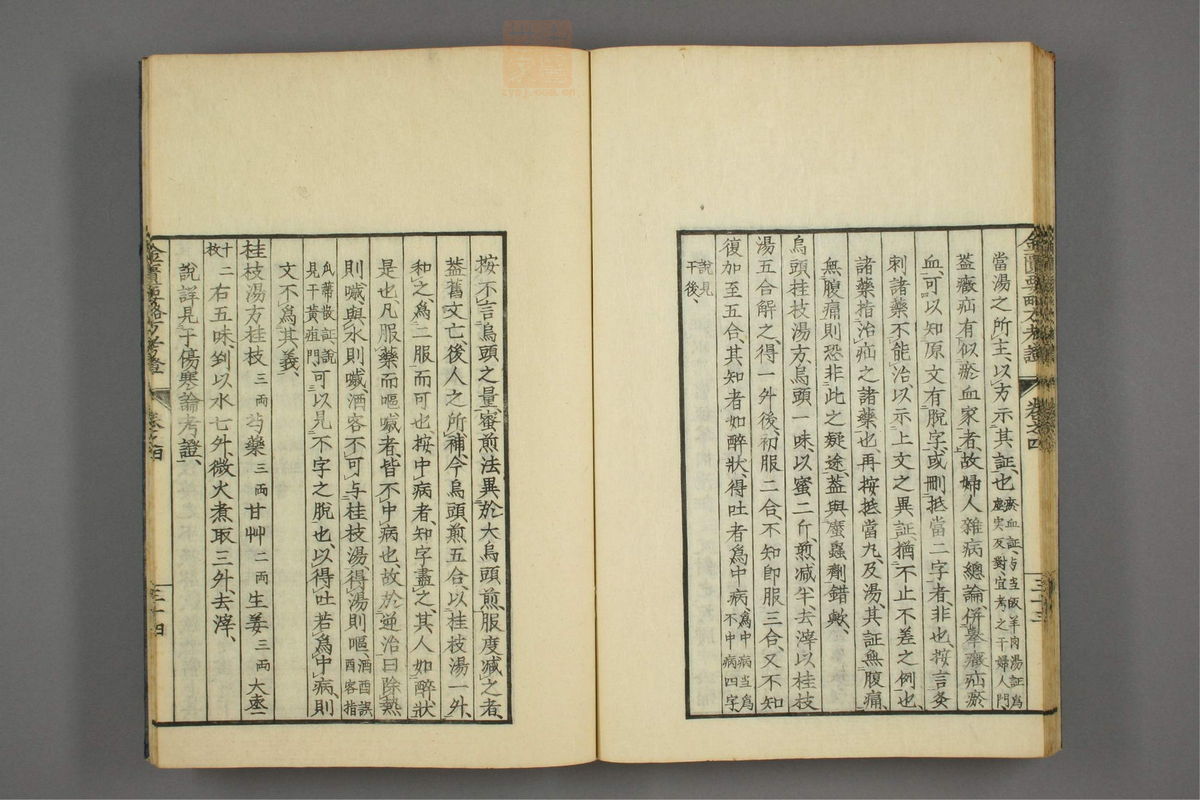 當湯之所主、以方示其証、也瘀血証、与当歃羊肉湯証為虛実反対宜考之干婦人門、
葢癥疝有似瘀血家者、故婦人雜病總論、併擧癥疝瘀
血、可以知原文有脫字、或刪抵當二字者非也、按言灸
刺諸藥不能治、以示上文之異証、猶不止不差之例也、
諸藥指治疝之諸藥也、再按抵當九、及湯、其証無腹痛、
無腹痛則恐非此之疑途、葢與䗪蟲劑錯歟、
烏頭桂枝湯方、烏頭一味、以蜜二斤、煎减半、去滓以桂枝
湯五合解之、得一升後、初服二合不知即服三合、又不知
復加至五合、其知者如醉狀、得吐者為中病、為中病当為不中病四字
說見干後、
金匱要略方考證 卷之四 三十三
按、不言烏頭之量、蜜煎法異於大烏頭煎、服度减之者、
葢舊文亡、後人之所補、今烏頭煎五合、以桂枝湯一升、
和之、為二服而可也、按中病者、知字盡之、其人如醉狀
是也、凡服藥而嘔噦者、皆不中病也、故於逆治曰、除熱
則噦、與水則噦、酒客不可与桂枝湯、得湯則嘔、酒酉誤酉客指
瓜蒂散証、說見于黄疸門、可以見不字之脫也、以得吐若為中病、則
文不為其義、
桂枝湯方桂枝三両芍藥三両甘艸二両生姜三両大棗
十二枚右五味、剉以水七升、微火煮取三升、去滓、
說詳見于傷寒論考證、
金匱要略方考證 卷之四 三十四